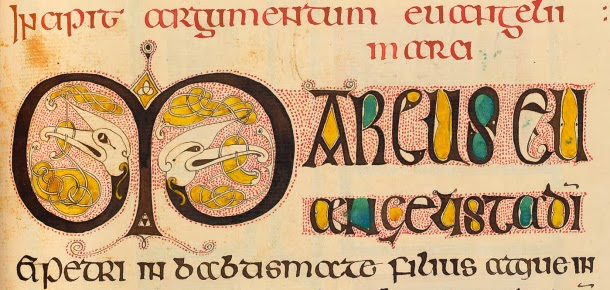 Incipit argumentum euangelii
marci
MARCUS EU
ANGELISTA DĪ
& PETRI IN babtismate filius atque IN